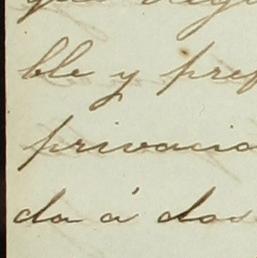 ble y pref
privacio
da á dos